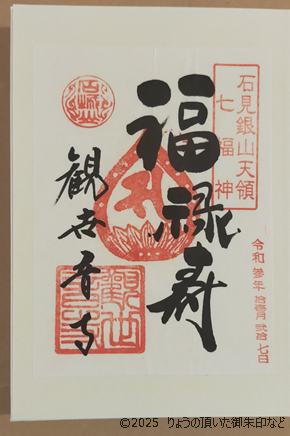 石見銀山天領
七福神
福禄寿
令和参年拾壱月弐拾七日
観世音寺
©2025 りょうの頂いた御朱印など